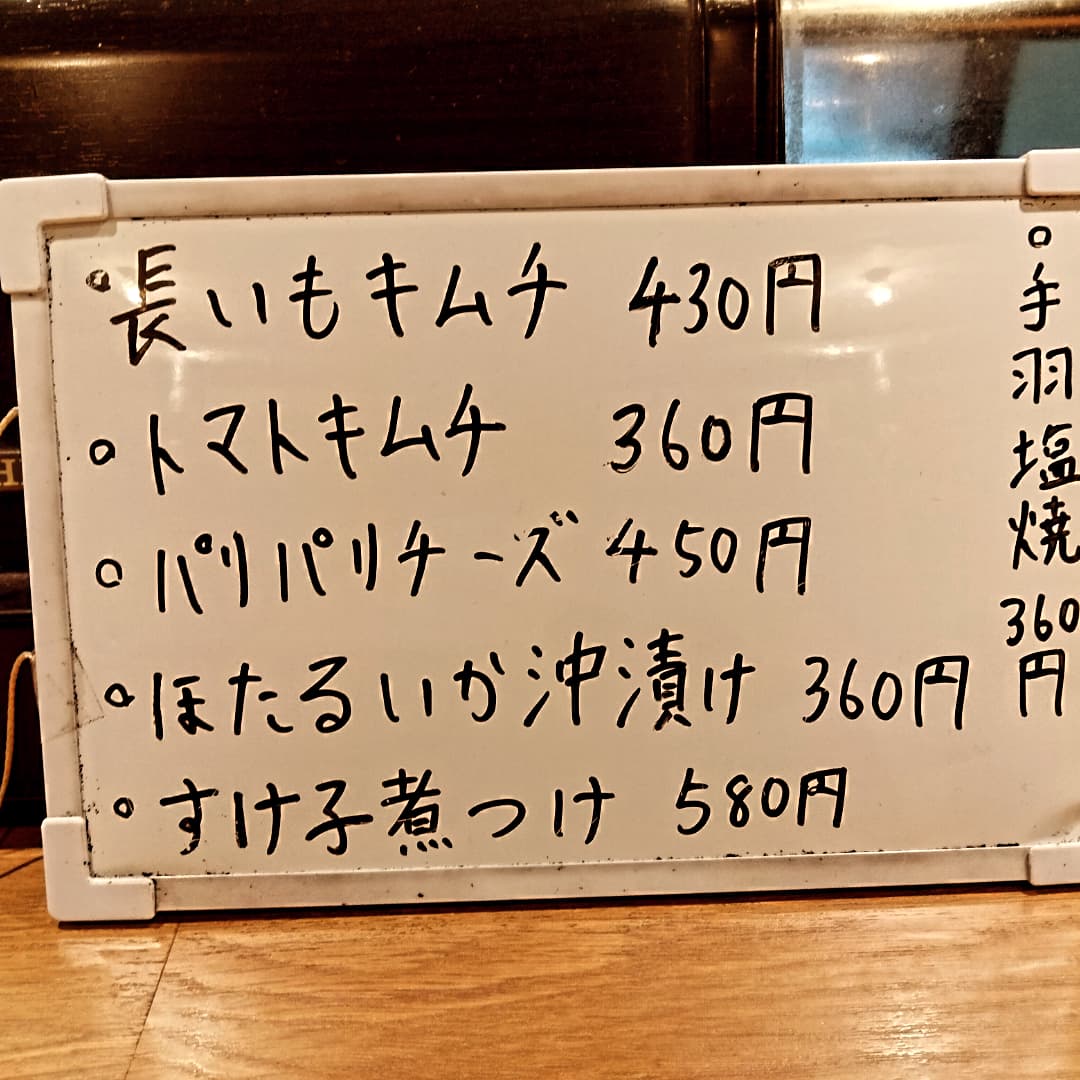 ◦長いもキムチ 430円
◦トマトキムチ 360円
◦パリパリチーズ 450円
◦ほたるいか沖漬け 360円
◦すけ子煮つけ 580円
◦手羽塩焼360円